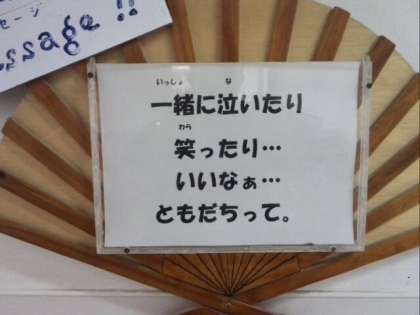 セージ
ssage!!
いっしょ な
一緒に泣いたり
わら
笑ったり…
いいなぁ…
ともだちって。